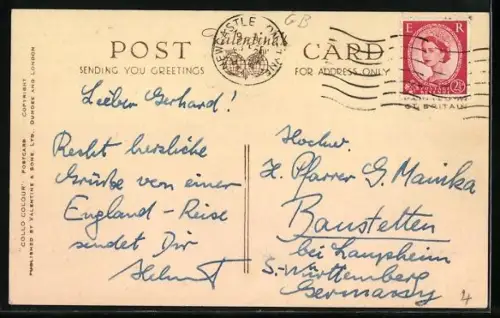 GB
POST Valentine's CARD
NEWCASTLE ON TYNE
SENDING YOU GREETINGS
FOR ADDRESS ONLY
E R
POSTAGE REVENUE
2½D
PRINTED IN
GT. BRITAIN
COLLO COLOUR POSTCARD COPYRIGHT
PUBLISHED BY VALENTINE & SONS, LTD., DUNDEE AND LONDON
Lieber Gerhard!
Recht herzliche
Grüße von einer
England-Reise
sendet Dir
Helmut
Hochw.
H. Pfarrer G. Manika
Baustetten
bei Laupheim
S.-Württemberg
Germany
4